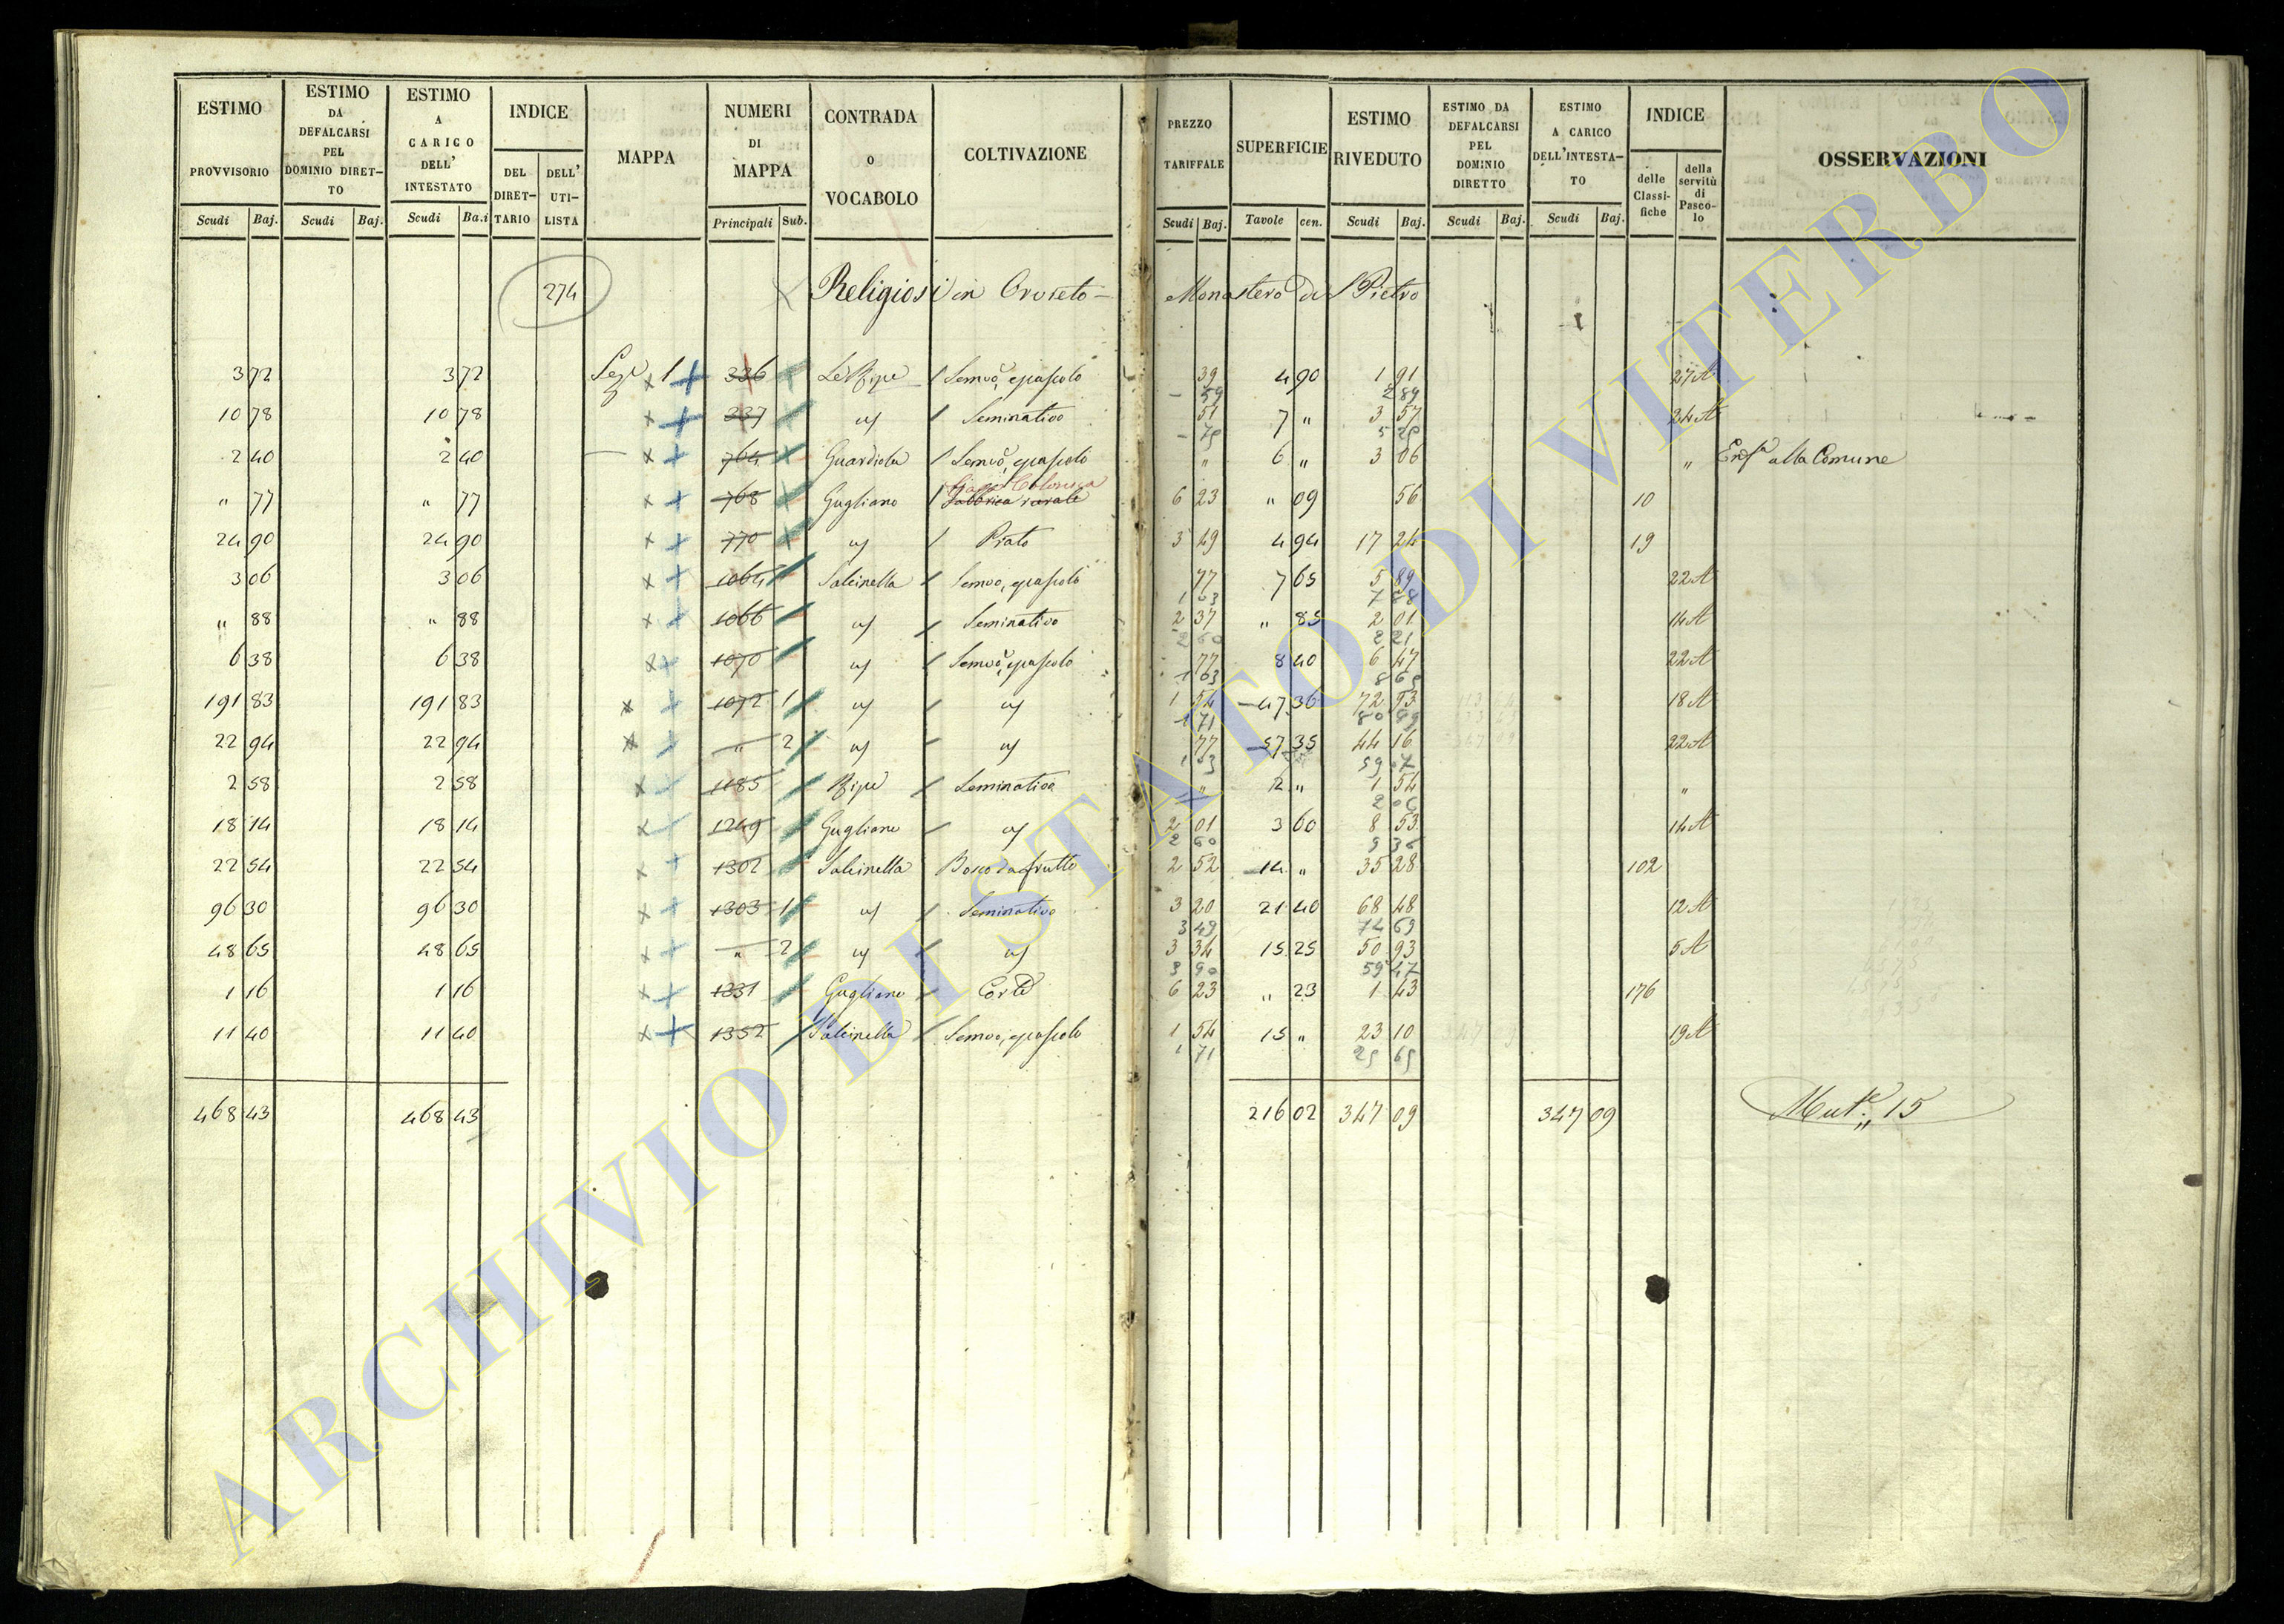 ESTIMO PROVVISORIO Scudi Baj.
ESTIMO DA DEFALCARSI PEL DOMINIO DIRET-TO Scudi Baj.
ESTIMO A CARICO DELL' INTESTATO Scudi Ba.i
INDICE DEL DIRET-TARIO DELL' UTI-LISTA
MAPPA
NUMERI DI MAPPA Principali Sub.
CONTRADA O VOCABOLO
COLTIVAZIONE
PREZZO TARIFFALE Scudi Baj.
SUPERFICIE Tavole cen.
ESTIMO RIVEDUTO Scudi Baj.
ESTIMO DA DEFALCARSI PEL DOMINIO DIRETTO Scudi Baj.
ESTIMO A CARICO DELL'INTESTA-TO Scudi Baj.
INDICE delle Classi-fiche della servitù di Pasco-lo
OSSERVAZIONI
274 Religiosi in Orvieto - Monastero di S Pietro
3 72 3 72 Sez.e 1 336 Le Ripe Semvo, e pascolo 39 4 90 1 91 27 A
- 59 2 89
10 78 10 78 337 " Seminativo 51 7 " 3 57 24 A
- 75 5 25
2 40 2 40 764 Guardiola Semvo, e pascolo " 6 " 3 06 " Enfa alla Comune
" 77 " 77 768 Gugliano Casa Colonica Fabbrica rurale 6 23 " 09 56 10
24 90 24 90 770 " Prato 3 49 4 94 17 24 19
3 06 3 06 1064 Salcinella Semvo, e pascolo 77 7 65 5 89 22 A
1 03 7 88
" 88 " 88 1066 " Seminativo 2 37 " 85 2 01 14 A
2 60 2 21
6 38 6 38 1070 " Semvo, e pascolo 77 8 40 6 47 22 A
1 03 8 65
191 83 191 83 1072 1 " " 1 54 47 36 72 93 18 A
1 71 80 99
22 94 22 94 " 2 " " 77 57 35 44 16 22 A
1 03 59 07
2 58 2 58 1185 Ripe Seminativo " 2 " 1 54 "
2 06
18 14 18 14 1249 Gugliano " 2 01 3 60 8 53 14 A
2 60 9 36
22 54 22 54 1302 Salcinella Bosco da frutto 2 52 14 " 35 28 102
96 30 96 30 1303 1 " Seminativo 3 20 21 40 68 48 12 A
3 49 74 69
48 65 48 65 " 2 " " 3 34 15 25 50 93 5 A
3 90 59 47
1 16 1 16 1331 Gugliano Corte 6 23 " 23 1 43 176
11 40 11 40 1352 Salcinella Semvo, e pascolo 1 54 15 " 23 10 19 A
1 71 25 65
468 43 468 43 216 02 347 09 347 09 Mut.e 15
ARCHIVIO DI STATO DI VITERBO